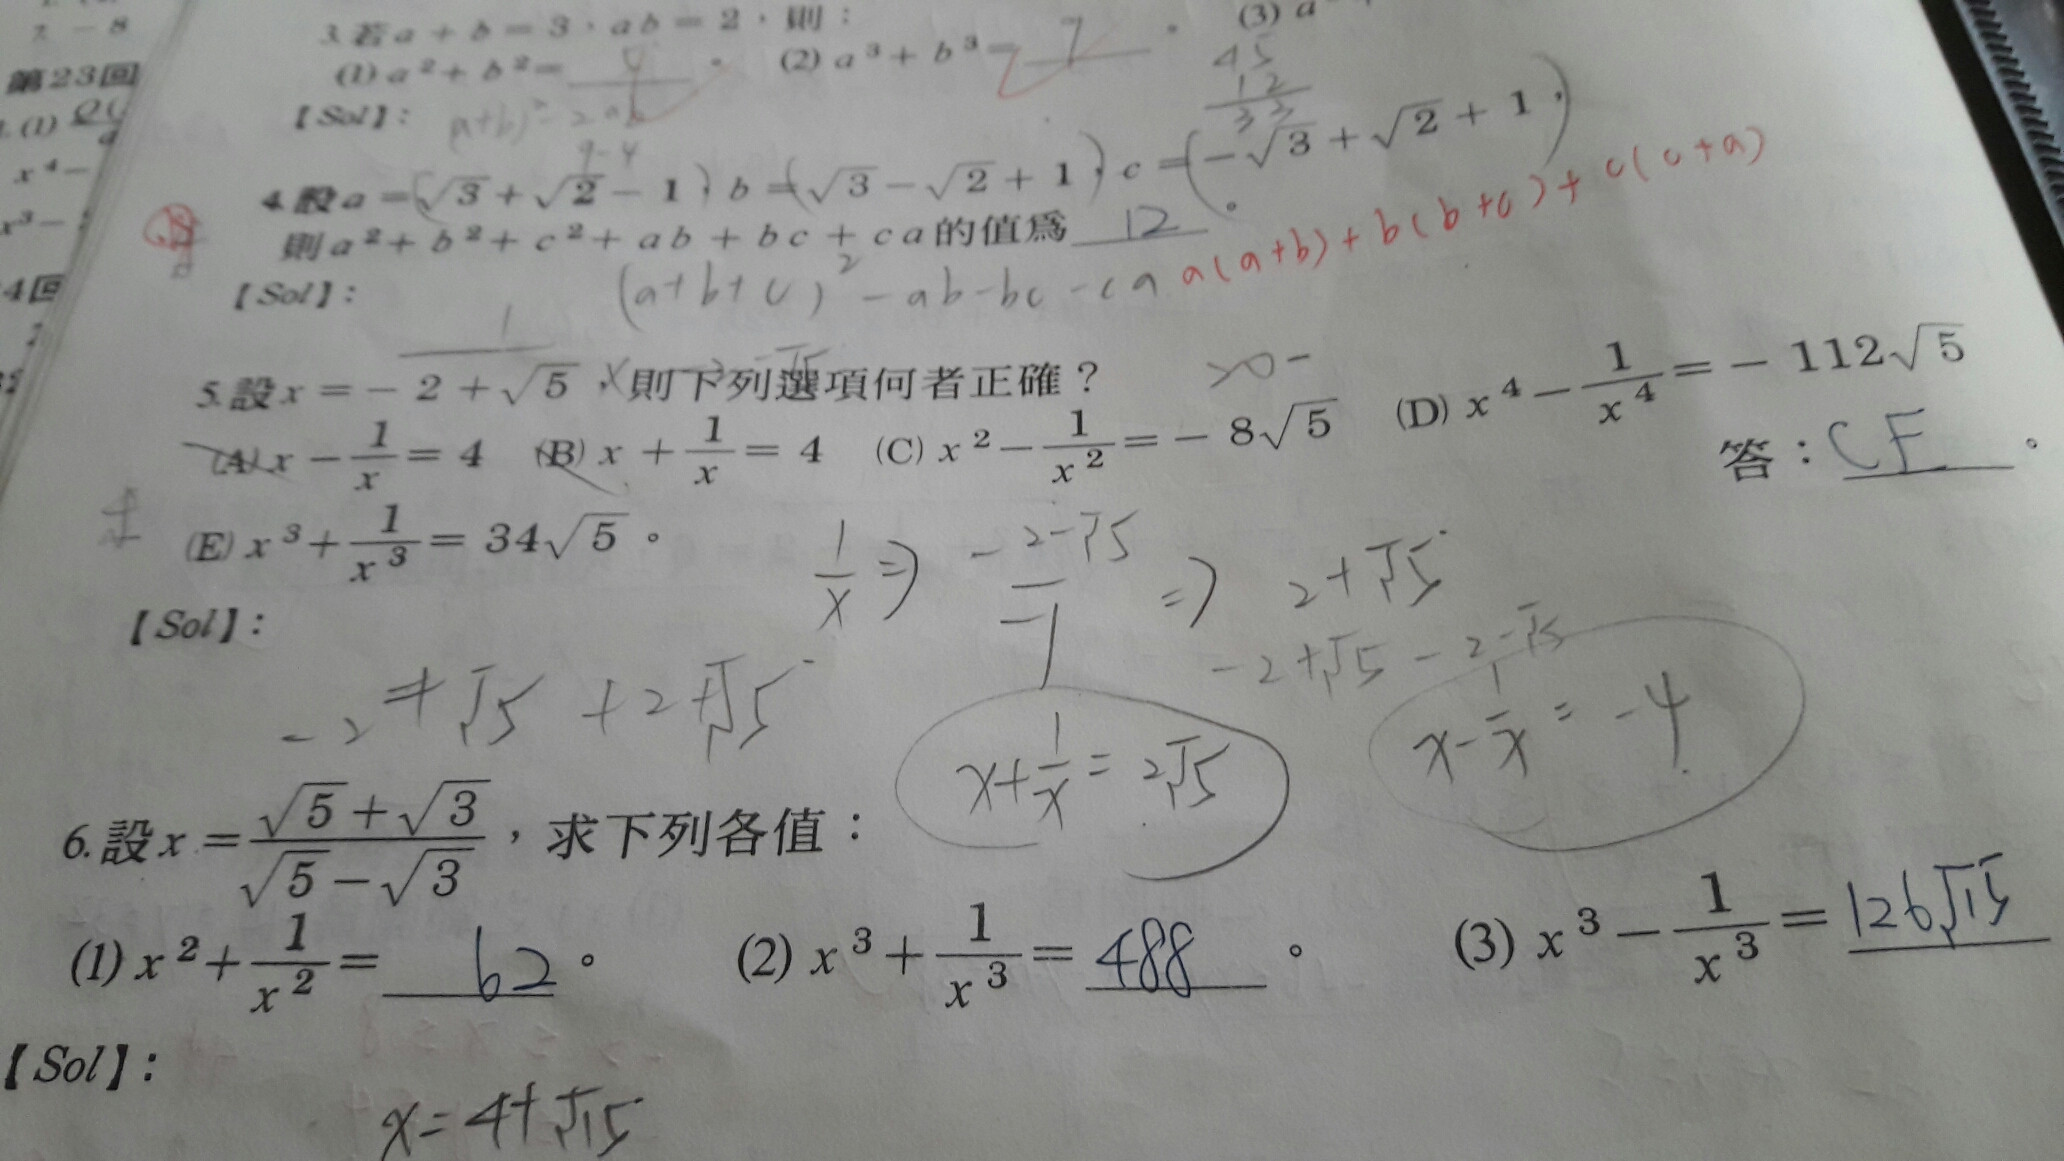 7. -8
第23回
3.若a+b=3,ab=2,則:
(1) a²+b²= 。 (2) a³+b³= 7 。 (3) a
【Sol】: (a+b)²-2ab
9-4
45
12
33
4.設a=(√3+√2-1),b=(√3-√2+1),c=(-√3+√2+1),
則a²+b²+c²+ab+bc+ca的值為 12 。
a(a+b)+b(b+c)+c(c+a)
【Sol】: (a+b+c)²-ab-bc-ca
5.設x=-2+√5,則下列選項何者正確?
(A) x-1/x=4 (B) x+1/x=4 (C) x²-1/x²=-8√5 (D) x⁴-1/x⁴=-112√5
答:CE。
(E) x³+1/x³=34√5。
1/x ⇒ (-2-√5)/(-1) ⇒ 2+√5
【Sol】:
-2+√5-2-√5
-2+√5+2+√5
x+1/x=2√5
x-1/x=-4
6.設x=(√5+√3)/(√5-√3),求下列各值:
(1) x²+1/x²= 62 。 (2) x³+1/x³= 488 。 (3) x³-1/x³= 126√15
【Sol】:
x=4+√15